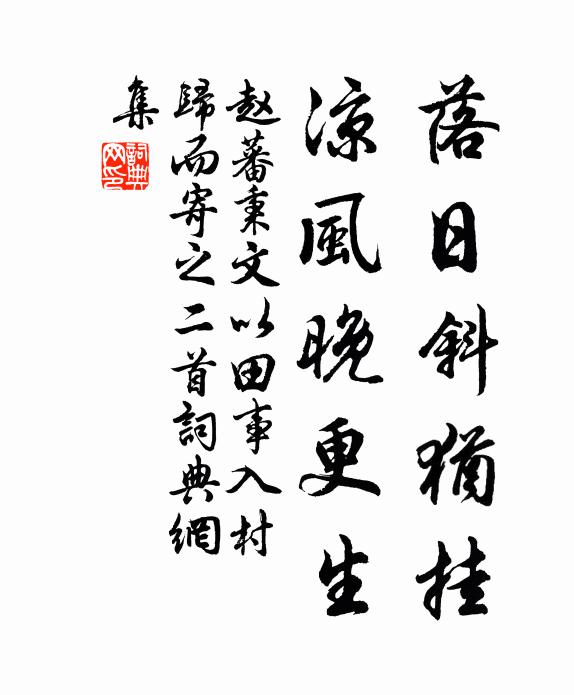 落日斜猶挂
涼風晚更生
赵蕃秉文以田事入村
歸而寄之二首詞典網
集
詞典
网印